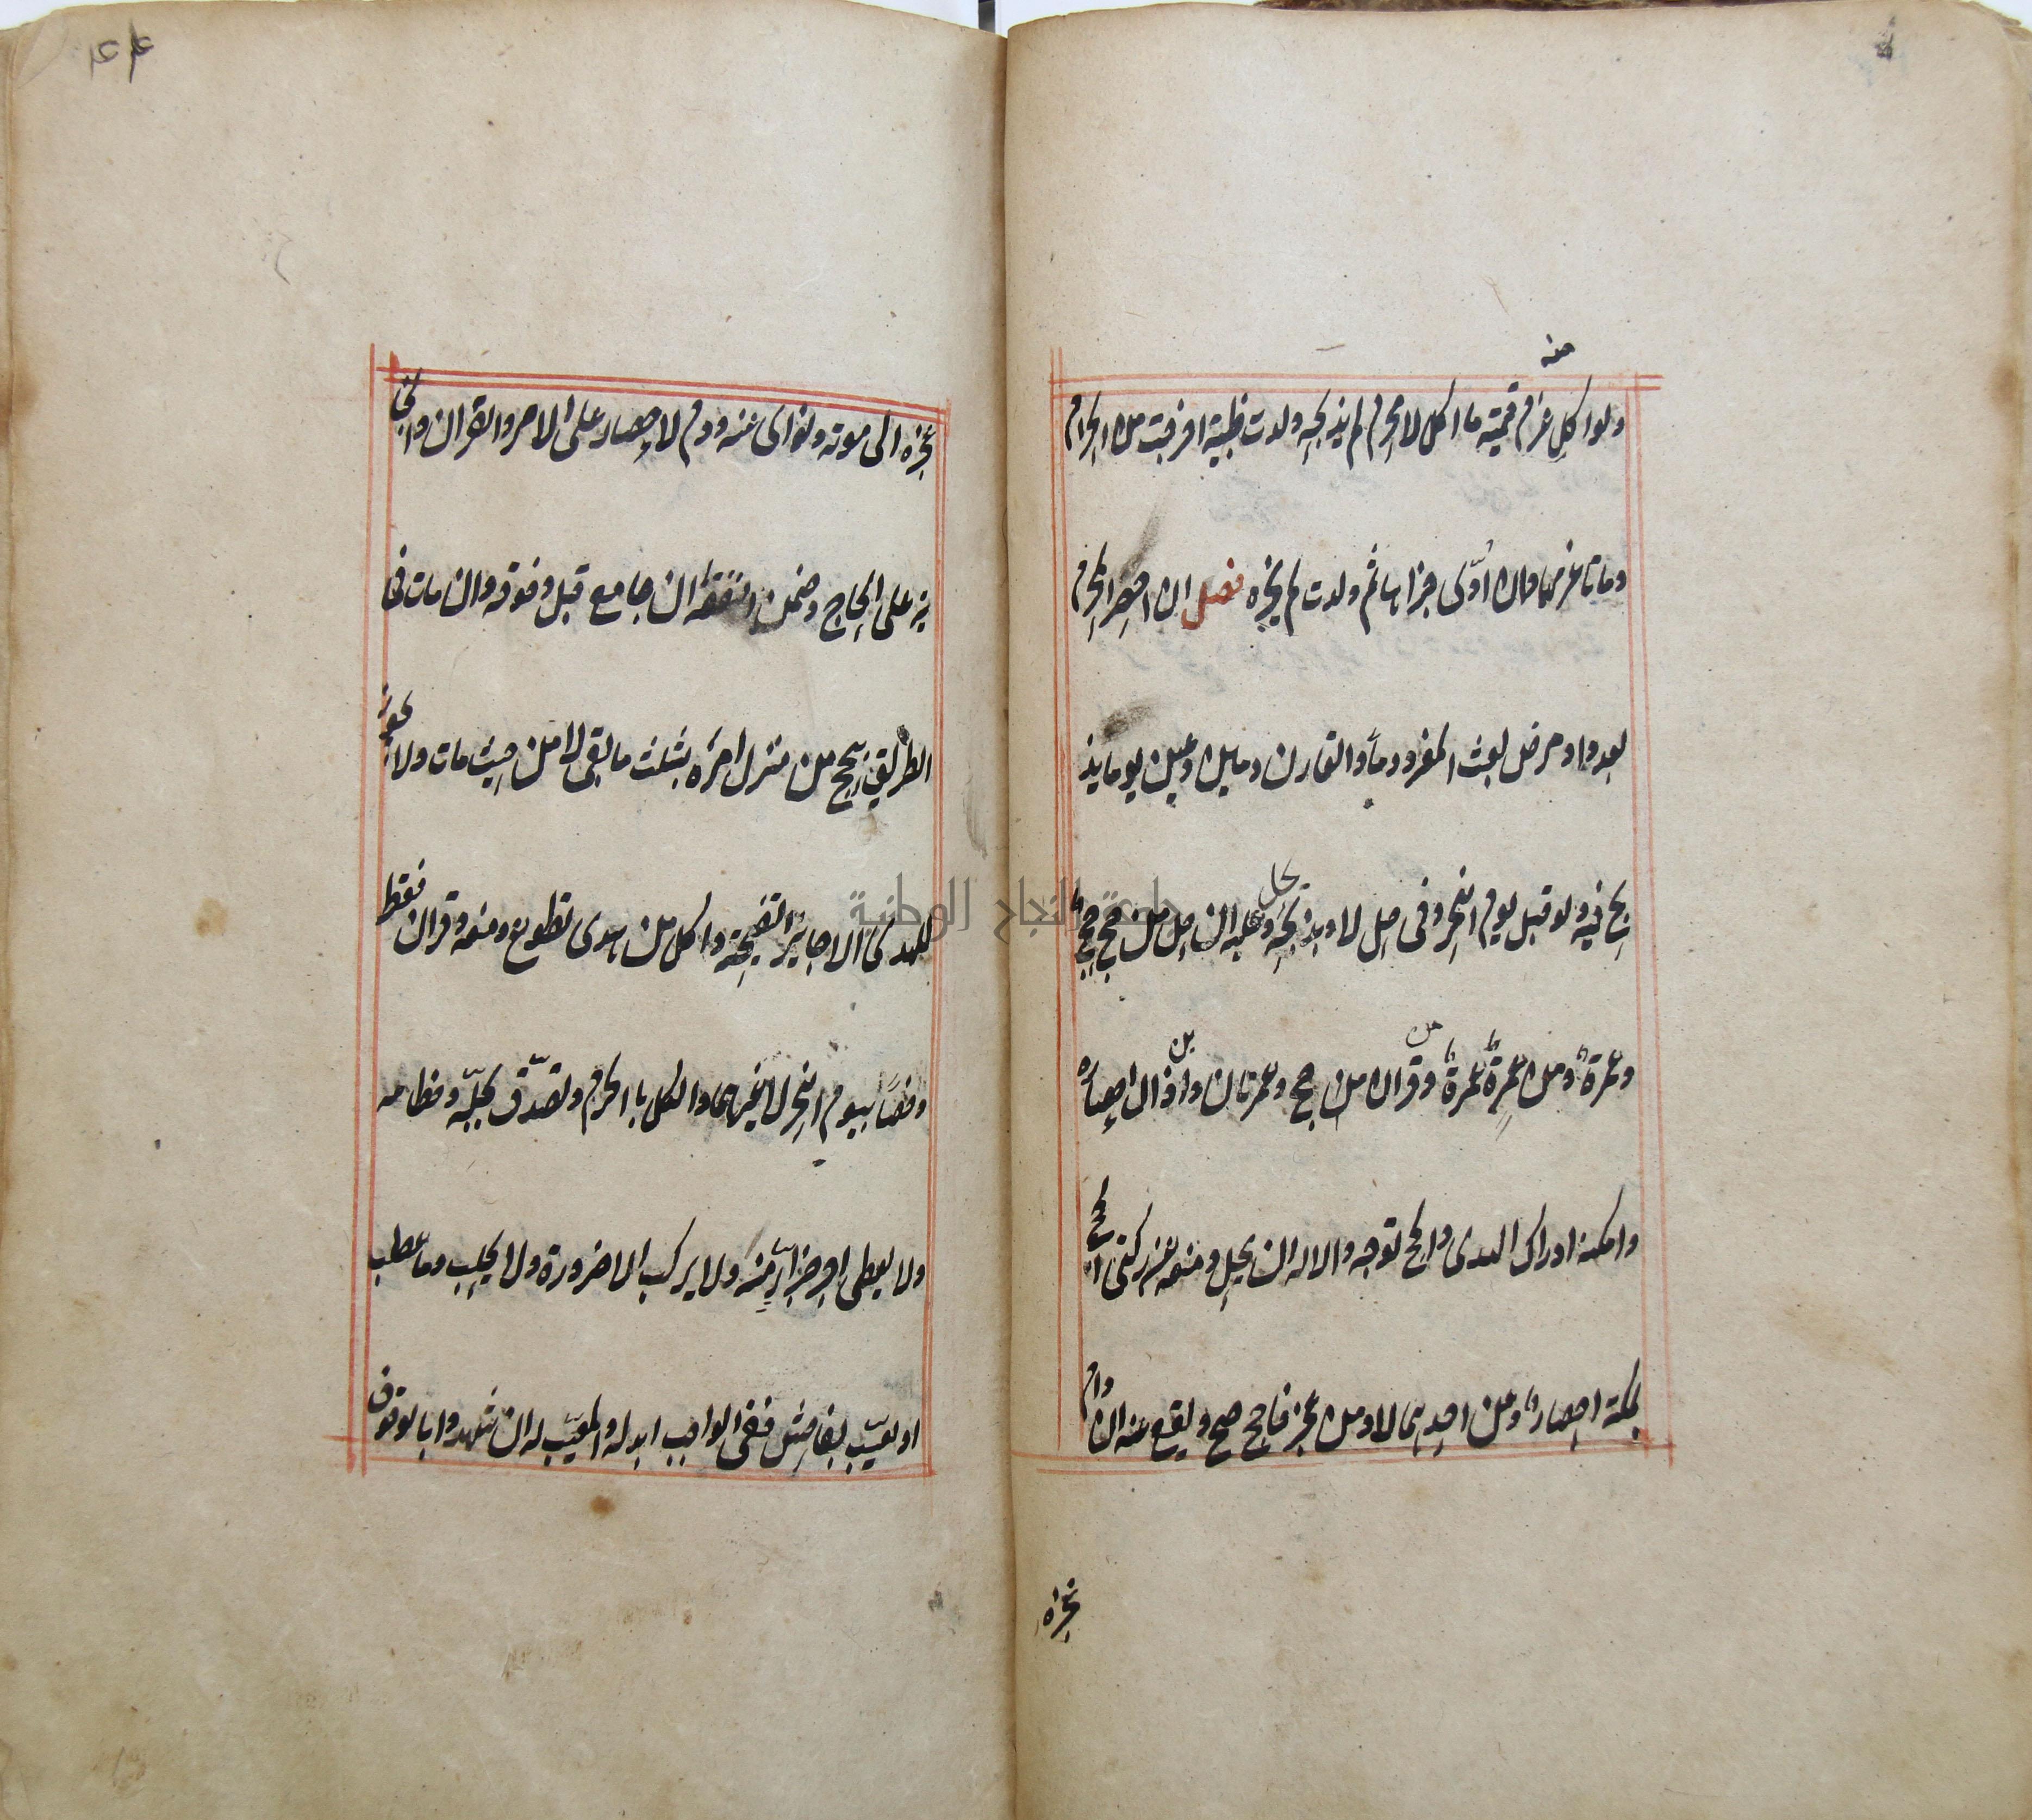 منه
ولو اكل غرم قيمة ما اكل لا محرم لم يذبحه ولدت ظبية اخرجت من الحرام
وماتا غرمهما وان ادّى جزاءها ثم ولدت لم يجزه فصل ان احصر المحرم
بعدو او مرض بعث المفرد دماً والقارن دمين وعين يوما يذ
بح فيه ولو قبل يوم النحر وفى حل لا وبذبحه يحل وعليه ان حل من حج حج
وعمرة ومن عمرة عمرة ومن قران حج وعمرتان واذا زال احصاره
وامكنه ادراك الهدى والحج توجه والا له ان يحل ومنعه عن ركنى الحج
بمكة احصار ومن احدهما لا ومن عجز فاحج صح ويقع عنه ان دام
عجزه
عجزه الى موته ونوى عنه ودم الاحصار على الامر والقران والجنا
ية على الحاج وضمن النفقة ان جامع قبل وقوفه وان مات فى
الطريق يحج من منزل امره بثلث ما بقى لا من حيث مات ولا يجوز
للهدى الا جايز التضحية واكل من هدى تطوع ومتعة وقران فقط
وخصّا بيوم النحر لا غيرهما والكل بالحرم وتصدّق بجلّه وخطامه
ولا يعطى اجر جزّار منه ولا يركب الا ضرورة ولا يحلب وما عطب
او تعيّب بفاحش ففى الواجب ابدله والمعيّب له ان شهدوا بالوقوف
٤٤
جامعة النجاح الوطنية